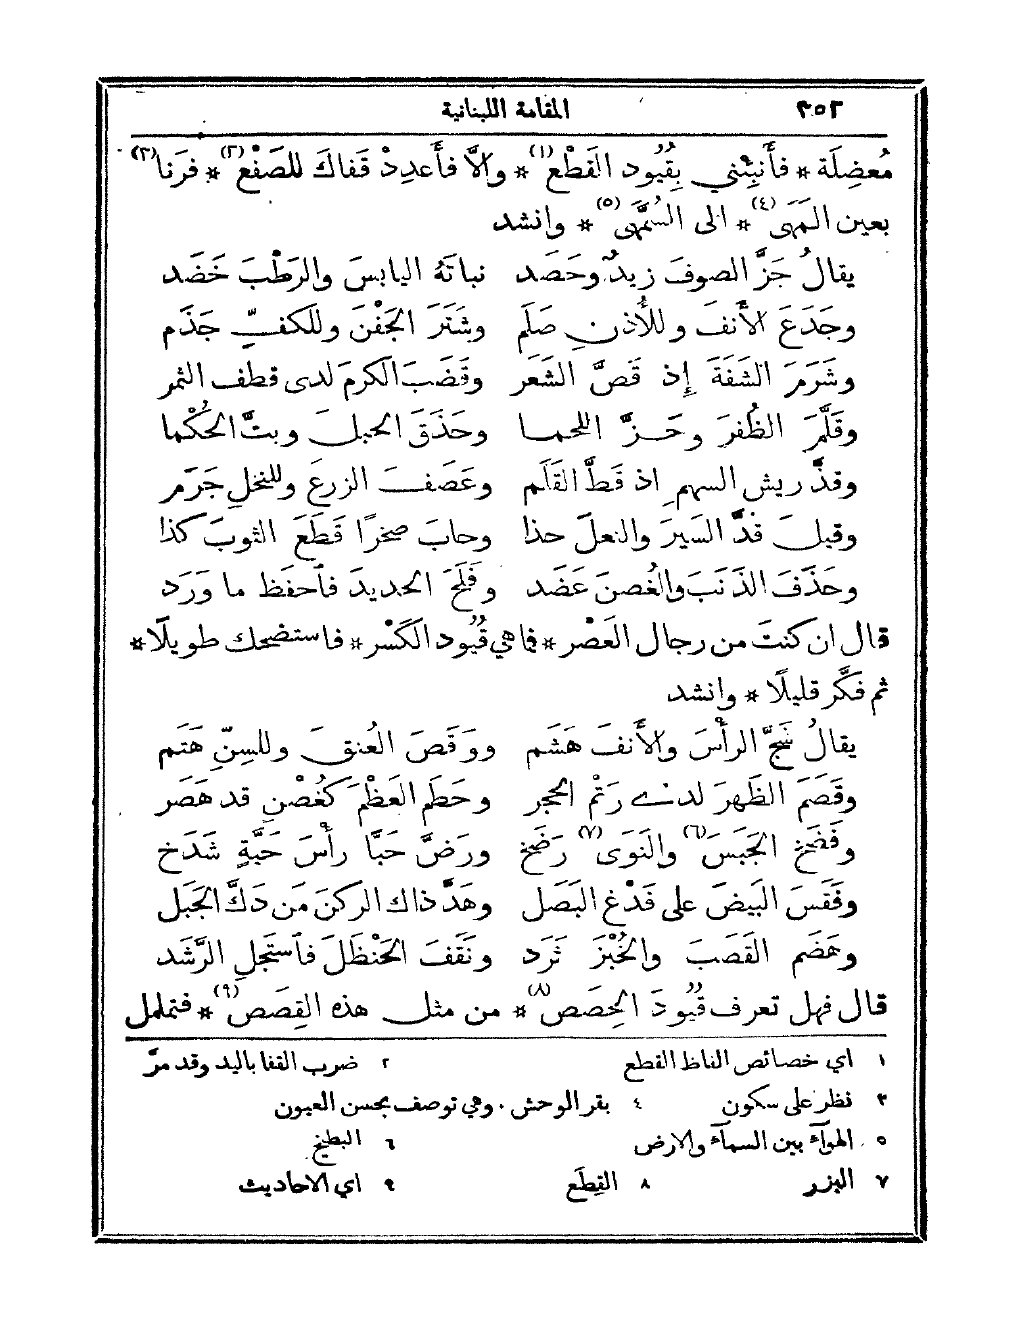 ٣٥٢ المقامة اللبنانية
مُعضِلَة * فأَنبِئْني بِقُيُود القَطْع (١) * والَّا فأَعدِدْ قَفاكَ للصَفْع (٢) * فرَنا (٣)
بعين المَهَى (٤) * الى السُمَّهَى (٥) * وانشد
يقالُ جَزَّ الصوفَ زيدٌ وحَصَد نباتَهُ اليابسَ والرَطْبَ خَضَد
وجَدَعَ الأَنفَ وللأُذنِ صَلَم وشَتَرَ الجَفْنَ وللكفِّ جَذَم
وشَرَمَ الشَفَةَ إِذ قَصَّ الشَعَر وقَضَبَ الكرمَ لدى قطف الثمر
وقَلَّمَ الظُفرَ وحَزَّ اللحما وحَذَقَ الحبلَ وبتَّ الحُكْما
وقذَّ ريش السهمِ اذ قَطَّ القَلَم وعَصَفَ الزرعَ وللنخلِ جَرَم
وقيلَ قدَّ السَيرَ والنعلَ حذا وجابَ صخرًا قَطَعَ الثوبَ كذا
وحَذَفَ الذَنَبَ والغُصنَ عَضَد وفَلَحَ الحديدَ فاحفَظ ما وَرَد
قال ان كنتَ من رجال العَصْر * فما هي قُيُود الكَسْر * فاستضحك طويلًا *
ثم فكَّر قليلًا * وانشد
يقالُ شَجَّ الرأْسَ والأَنفَ هَشَم ووَقَصَ العُنقَ وللسِنّ هَتَم
وقَصَمَ الظَهرَ لدى رَتْم الحجر وحَطَم العَظْمَ كغُصنٍ قد هَصَر
وفَضَخَ الجَبَسَ (٦) والنَوَى (٧) رَضَخ ورَضَّ حَبًّا رأْسَ حَيَّةٍ شَدَخ
وفَقَسَ البَيضَ على فَدْغ البَصَل وهَدَّ ذاك الركنَ مَن دَكَّ الجَبل
وهَضَم القَصَبَ والخُبْزَ ثَرَد ونَقَفَ الحَنْظَلَ فاستَجلِ الرَّشَد
قال فهل تعرف قُيُودَ الحِصَص (٨) * من مثل هذه القِصَص (٩) * فتململ
١ اي خصائص الفاظ القطع ٢ ضرب القفا باليد وقد مرَّ
٣ نظر على سكون ٤ بقر الوحش . وهي توصف بحسن العيون
٥ الهوآء بين السمآء والارض ٦ البطيخ
٧ البزر ٨ القِطَع ٩ اي الاحاديث